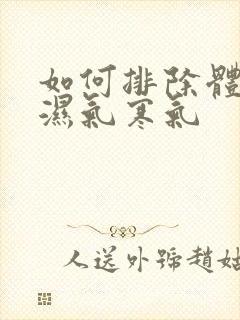 如何排除體
濕氣寒氣
人送外號趙姑